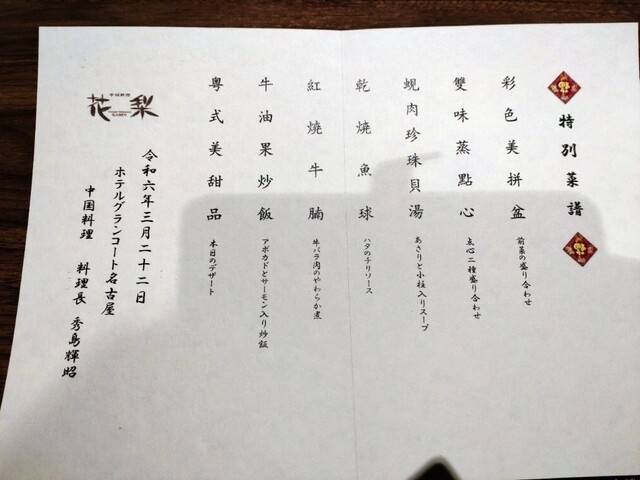 特別菜譜
彩色美拼盆
前菜の盛り合わせ
雙味蒸點心
点心二種盛り合わせ
蜆肉珍珠貝湯
あさりと小柱入りスープ
乾燒魚球
ハタのチリソース
紅燒牛腩
牛バラ肉のやわらか煮
牛油果炒飯
アボカドとサーモン入り炒飯
粵式美甜品
本日のデザート
令和六年三月二十二日
ホテルグランコート名古屋
中国料理 料理長 秀島輝昭
中国料理
花梨